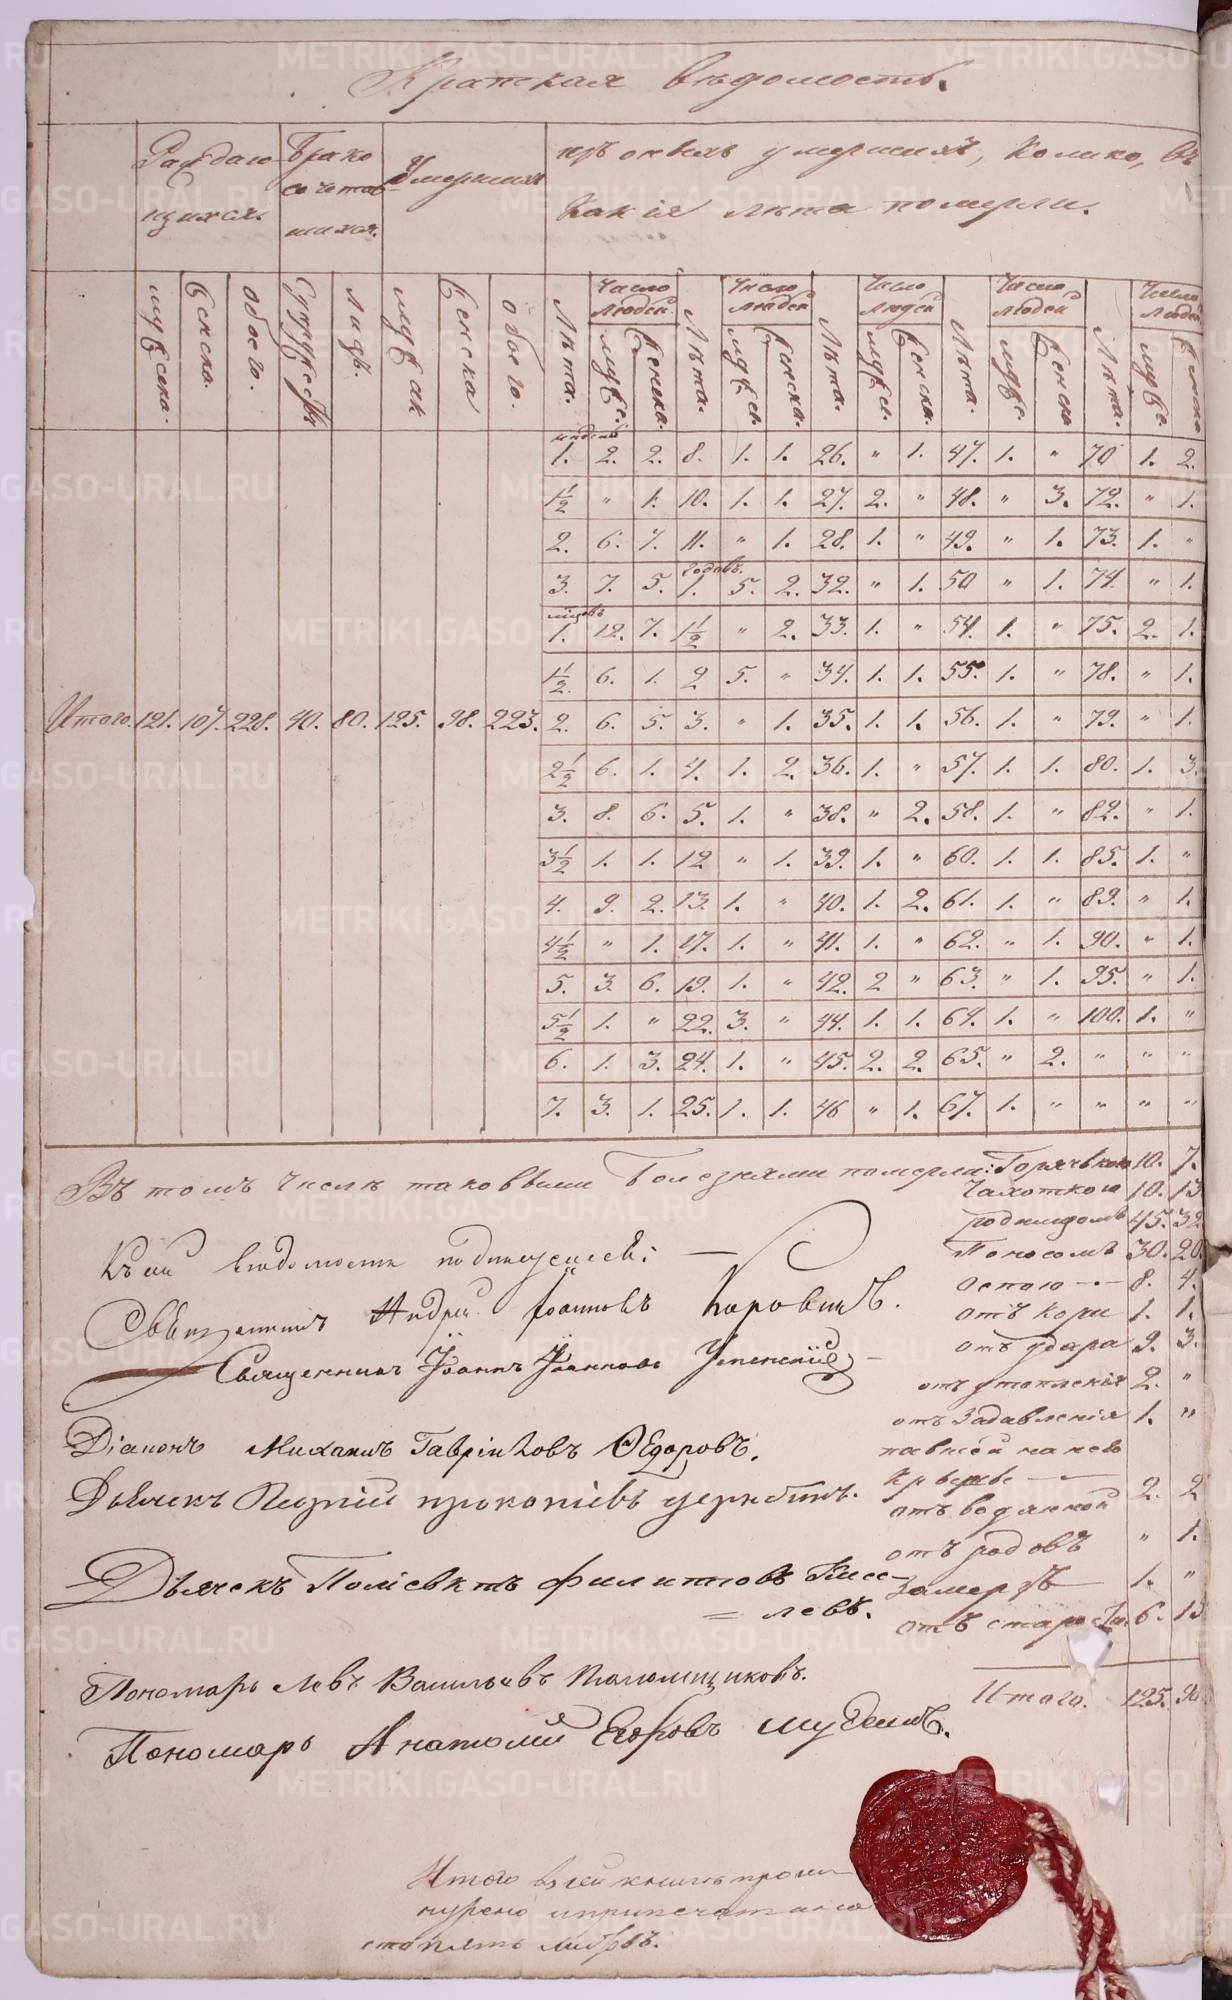 Краткая вѣдомость.
Раждаю- Брако Умершихъ изъ оныхъ умершихъ, колико, въ
щихся. сочетав-
шихся. Какія лѣта померли.
мужеска. Женска. обоего. Супружествъ Лицъ. мужеск Женска обоего.
Лѣта. Число людей. Лѣта. Число людей Лѣта. Число людей Лѣта. Число людей Лѣта. Число людей
недель годовъ. мѣсяцовъ
1. 2. 2. 8. 1. 1. 26. " 1. 47. 1. " 70 1. 2.
1½ " 1. 10. 1. 1. 27. 2. " 48. " 3. 72. " 1.
2. 6. 7. 11. " 1. 28. 1. " 49. " 1. 73. 1. "
3. 7. 5. 1. 5. 2. 32. " 1. 50 " 1. 74. " 1.
1. 12. 7. 1½ " 2. 33. 1. " 54. 1. " 75. 2. 1.
1½. 6. 1. 2 5. " 34. 1. 1. 55. 1. " 78. " 1.
Итого. 121. 107. 228. 40. 80. 125. 98. 223. 2. 6. 5. 3. " 1. 35. 1. 1. 56. 1. " 79. " 1.
2½ 6. 1. 4. 1. 2. 36. 1. " 57. 1. 1. 80. 1. 3.
3. 8. 6. 5. 1. " 38. " 2. 58. 1. " 82. " 1.
3½ 1. 1. 12 " 1. 39. 1. " 60. 1. 1. 85. 1. "
4. 9. 2. 13. 1. " 40. 1. 2. 61. 1. " 89. " 1.
4½ " 1. 17. 1. " 41. 1. " 62. " 1. 90. " 1.
5. 3. 6. 19. 1. " 42. 2 " 63. " 1. 95. " 1.
5½ 1. " 22. 3. " 44. 1. 1. 64. 1. " 100. 1. "
6. 1. 3. 24. 1. " 45. 2. 2. 65. " 2. " " "
7. 3. 1. 25. 1. 1. 46 " 1. 67. 1. " " " "
Въ томъ числѣ таковыми болезнями померли: Горячкою 10. 7.
Чахоткою 10. 13
родимцомъ 45. 32
Поносомъ 30. 20.
Оспою 8. 4.
отъ кори 1. 1.
отъ удара 9. 3.
отъ утопленія 2. "
отъ задавленія 1. "
павшей на нево
отъ водяной 2. 2
отъ родовъ " 1.
Замерзъ 1. "
отъ старо 6. 13
Итого. 125. 98
Къ сей ведомости подписуемся:
Священникъ Андрей Іоанновъ Коровинъ.
Священникъ Іоаннъ Іоанновъ Успенскій
Діаконъ Михаилъ Гавріиловъ Ѳедоровъ.
Дьячекъ прокопіевъ
Дьячекъ Поліевктъ Филиповъ Кисе-
левъ.
Пономарь Левъ Васильевъ
Пономарь Анатолий Егоровъ
Итого в сей книгѣ прош-
нурено и припечатано
сто пять листовъ.
METRIKI.GASO-URAL.RU